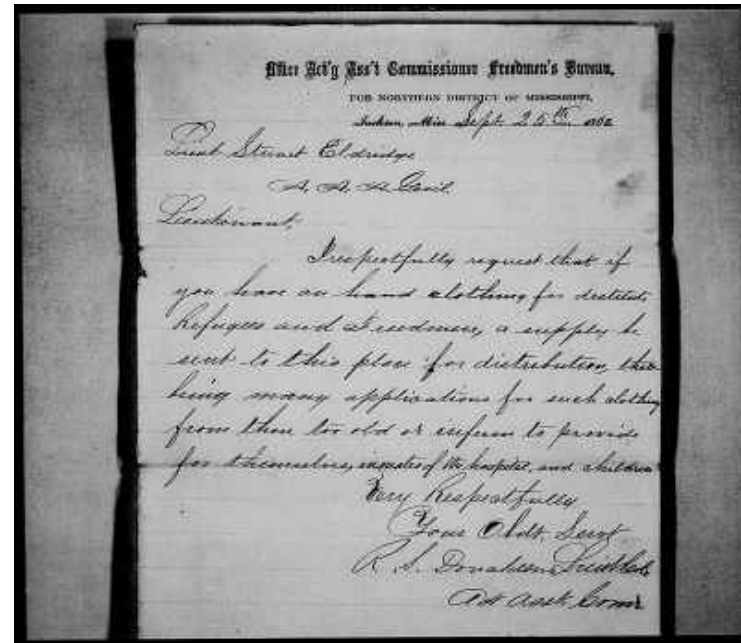 Office Act'g Ass't Commissioner Freedmen's Bureau,
FOR NORTHERN DISTRICT OF MISSISSIPPI,
Jackson, Miss Sept. 25th 186
Lieut Stuart Eldridge
A. A. A. Genl.
Lieutenant,
I respectfully request that if
you have on hand clothing for destitute
Refugees and Freedmen, a supply be
sent to this place for distribution, there
being many applications for such clothing
from those too old or infirm to provide
for themselves, inmates of the hospital, and children
Very Respectfully
Your Obdt. Servt
R. S. Donaldson Lieut Col.
Act Asst. Comr